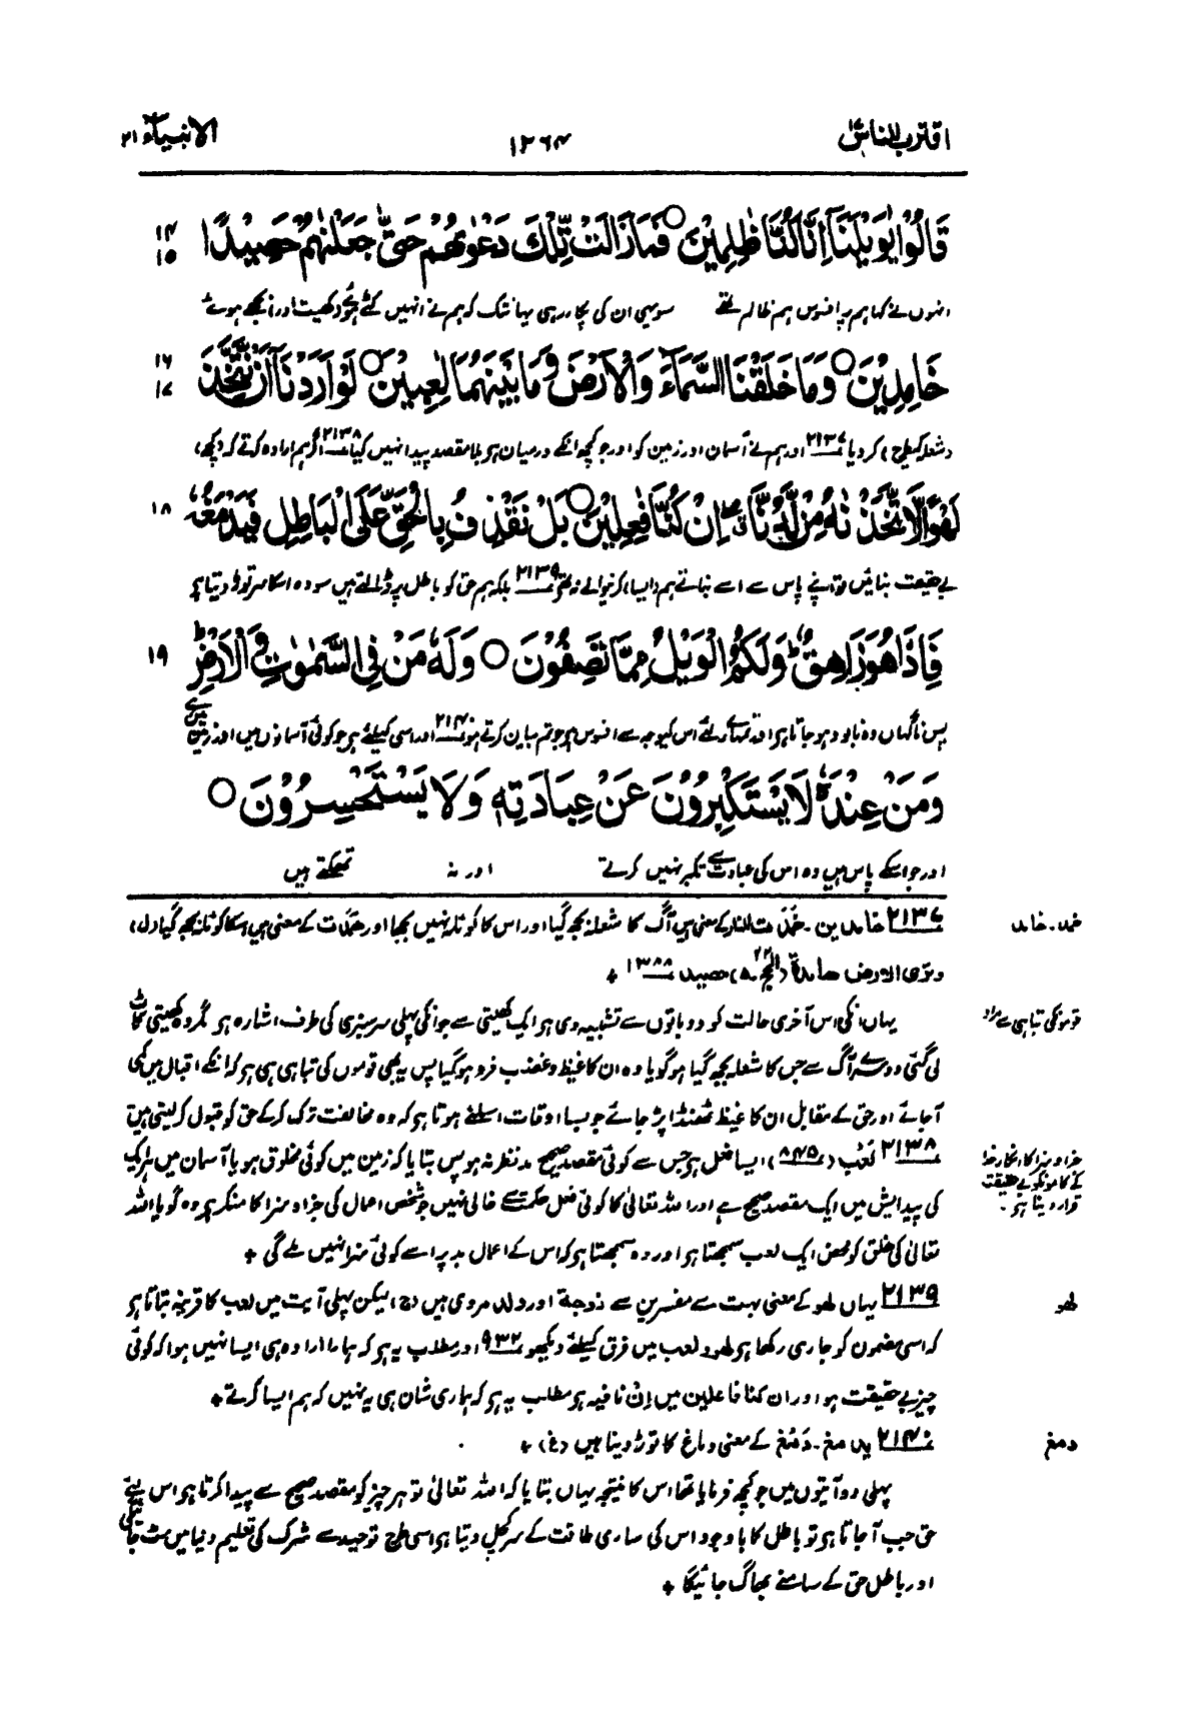 اقترب للناس ۱۷
۱۲۶۴
الانبیآء ۲۱
قَالُوْا یٰوَیْلَنَاۤ اِنَّا كُنَّا ظٰلِمِیْنَ ○ فَمَا زَالَتْ تِّلْكَ دَعْوٰىهُمْ حَتّٰى جَعَلْنٰهُمْ حَصِیْدًا
۱۴
۱۵
انہوں نے کہا ہم پر افسوس ہم ظالم تھے سو یہی ان کی پکار رہی یہانتک کہ ہم نے انہیں کٹے ہوئے کھیت اور بجھے ہوئے
خٰمِدِیْنَ ○ وَمَا خَلَقْنَا السَّمَآءَ وَالْاَرْضَ وَمَا بَیْنَهُمَا لٰعِبِیْنَ ○ لَوْ اَرَدْنَاۤ اَنْ نَّتَّخِذَ
۱۶
۱۷
(شعلہ کیطرح) کر دیا ۲۱۳۷ اور ہم نے آسمان اور زمین کو اور جو کچھ انکے درمیان ہو بلا مقصد پیدا نہیں کیا ۲۱۳۸ اگر ہم ارادہ کرتے کہ کچھ
لَهْوًا لَّاتَّخَذْنٰهُ مِنْ لَّدُنَّاۤ ۖ اِنْ كُنَّا فٰعِلِیْنَ ○ بَلْ نَقْذِفُ بِالْحَقِّ عَلَى الْبَاطِلِ فَیَدْمَغُهٗ
۱۸
بے حقیقت بنائیں تو اپنے پاس سے اسے بناتے ہم (ایسا) کرنیوالے نہ تھے ۲۱۳۹ بلکہ ہم حق کو باطل پر ڈالتے ہیں سو وہ اسکا سر توڑ دیتا ہے
فَاِذَا هُوَ زَاهِقٌ ؕ وَلَكُمُ الْوَیْلُ مِمَّا تَصِفُوْنَ ○ وَلَهٗ مَنْ فِی السَّمٰوٰتِ وَالْاَرْضِ ؕ
۱۹
پس ناگہاں وہ نابود ہو جاتا ہو اور تمہارے لئے اس کیوجہ سے افسوس ہو جو تم بیان کرتے ہو ۲۱۴۰ اور اسی کیلئے ہو جو کوئی آسمانوں میں اور زمین میں ہے
وَمَنْ عِنْدَهٗ لَا یَسْتَكْبِرُوْنَ عَنْ عِبَادَتِهٖ وَلَا یَسْتَحْسِرُوْنَ ○
اور جو اسکے پاس ہیں وہ اس کی عبادت سے تکبر نہیں کرتے اور نہ تھکتے ہیں
خمد۔ خامد
۲۱۳۷ خامدین۔ خَمَدَت النار کے معنی ہیں آگ کا شعلہ بجھ گیا اور اس کا کوئلہ نہیں بجھا اور همدت کے معنی ہیں اسکا کوئلہ بجھ گیا (ل)،
وتری الارض هامدة (الحج ۲۲۔۵) حصید ۱۳۸۸ +
قوموں کی تباہی سے مراد
یہاں انکی اس آخری حالت کو دو باتوں سے تشبیہ دی ہو ایک کھیتی سے جو انکی پہلی سرسبزی کی طرف اشارہ ہو مگر وہ کھیتی کاٹ
لی گئی دوسرے آگ سے جس کا شعلہ بجھ گیا ہو گویا وہ ان کا غیظ و غضب فرو ہو گیا پس یہی قوموں کی تباہی ہی ہو کہ انکے اقبال میں کمی
آجائے اور حق کے مقابل ان کا غیظ ٹھنڈا پڑ جائے جو بسا اوقات اسلئے ہوتا ہو کہ وہ مخالفت ترک کرکے حق کو قبول کر لیتی ہیں
جزا و سزا کا انکار خدا کے کاموں کو بے حقیقت قرار دینا ہو۔
۲۱۳۸ لعب (۸۴۵) ایسا فعل ہو جس سے کوئی مقصد صحیح مدنظر نہ ہو پس بتایا کہ زمین میں کوئی مخلوق ہو یا آسمان میں ہر ایک
کی پیدایش میں ایک مقصد صحیح ہے اور اللہ تعالیٰ کا کوئی فعل حکمت سے خالی نہیں جو شخص اعمال کی جزا و سزا کا منکر ہو وہ گویا اللہ
تعالیٰ کی خلق کو محض ایک لعب سمجھتا ہو اور وہ سمجھتا ہو کہ اس کے اعمال بد پر اسے کوئی سزا نہیں ملے گی +
لھو
۲۱۳۹ یہاں لھو کے معنی بہت سے مفسرین سے زوجة اور ولد مروی ہیں (ج) لیکن پہلی آیت میں لعب کا قرینہ بتاتا ہو
کہ اسی مضمون کو جاری رکھا ہو لھو و لعب میں فرق کیلئے دیکھو ۹۳۲ اور مطلب یہ ہو کہ ہمارا ارادہ ہی ایسا نہیں ہوا کہ کوئی
چیز بے حقیقت ہو اور ان کنا فاعلین میں اِنْ نافیہ ہو مطلب یہ ہو کہ ہماری شان ہی یہ نہیں کہ ہم ایسا کرتے +
دمغ
۲۱۴۰ یدمغ۔ دَمْغ کے معنی دماغ کا توڑ دینا ہیں (غ) +
پہلی دو آیتوں میں جو کچھ فرمایا تھا اس کا نتیجہ یہاں بتایا کہ اللہ تعالیٰ تو ہر چیز کو مقصد صحیح سے پیدا کرتا ہو اس لیے
حق جب آ جاتا ہو تو باطل کا باوجود اس کی ساری طاقت کے سر کچل دیتا ہو اسی طرح توحید سے شرک کی تعلیم دنیا میں مٹ جائیگی
اور باطل حق کے سامنے بھاگ جائیگا +